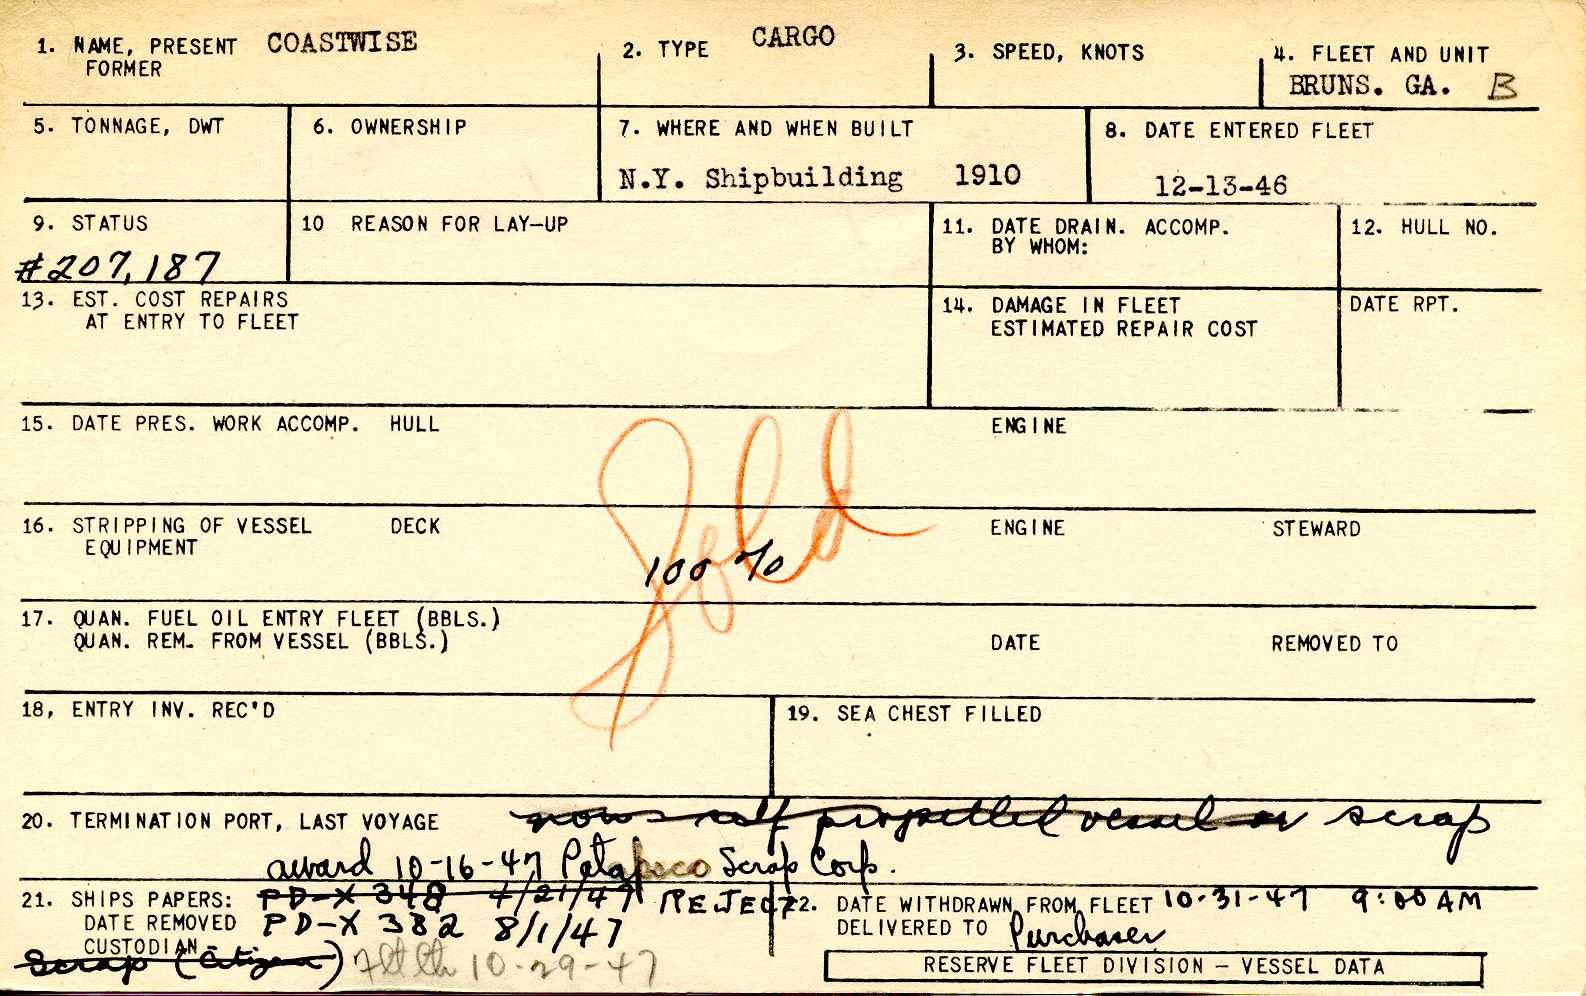 1. NAME, PRESENT COASTWISE
FORMER
2. TYPE CARGO
3. SPEED, KNOTS
4. FLEET AND UNIT
BRUNS. GA. B
5. TONNAGE, DWT
6. OWNERSHIP
7. WHERE AND WHEN BUILT
N.Y. Shipbuilding 1910
8. DATE ENTERED FLEET
12-13-46
9. STATUS
#207,187
10 REASON FOR LAY-UP
11. DATE DRAIN. ACCOMP.
BY WHOM:
12. HULL NO.
13. EST. COST REPAIRS
AT ENTRY TO FLEET
14. DAMAGE IN FLEET
ESTIMATED REPAIR COST
DATE RPT.
15. DATE PRES. WORK ACCOMP. HULL ENGINE
Sold
16. STRIPPING OF VESSEL DECK ENGINE STEWARD
EQUIPMENT
100 %
17. QUAN. FUEL OIL ENTRY FLEET (BBLS.)
QUAN. REM. FROM VESSEL (BBLS.) DATE REMOVED TO
18, ENTRY INV. REC'D
19. SEA CHEST FILLED
20. TERMINATION PORT, LAST VOYAGE non-self propelled vessel or scrap
award 10-16-47 Patapsco Scrap Corp.
21. SHIPS PAPERS: PD-X 348 4/21/47 REJECT
DATE REMOVED PD-X 382 8/1/47
CUSTODIAN
Scrap (Citizen) 10-29-47
22. DATE WITHDRAWN FROM FLEET 10-31-47 9:00 AM
DELIVERED TO Purchaser
RESERVE FLEET DIVISION – VESSEL DATA